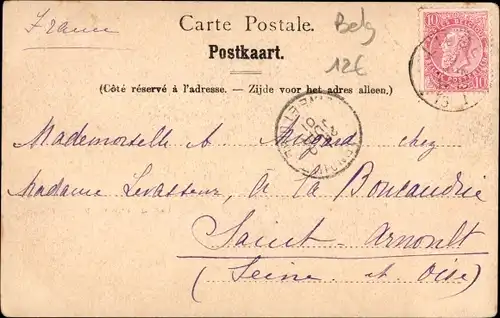 France
Carte Postale.
Belg
Postkaart.
12€
10
(Côté réservé à l'adresse. — Zijde voor het adres alleen.)
Mademoiselle A chez
Madame Levasseur, A La Boucaudrie
Saint-Arnoult
(Seine et Oise)